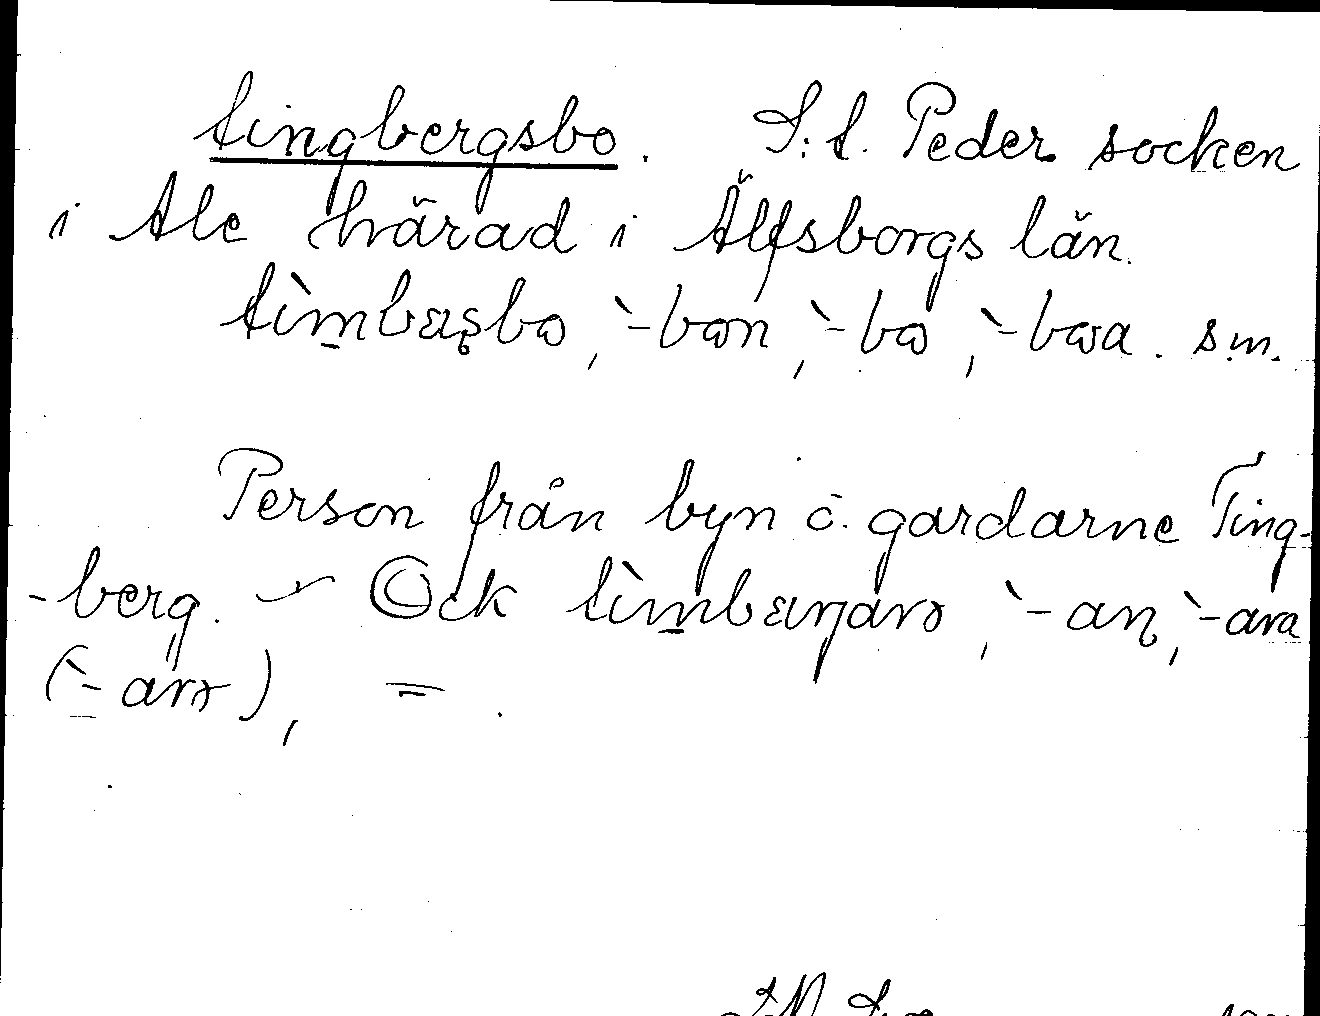 tingbergsbo. S:t. Peder socken
i Ale härad i Älfsborgs län.
tìmbæșbo, `-bon, `-bo, `-boa. sm.
Person från byn o. gardarne Ting-
-berg. – Ock tìmbæŋarə, `-aɳ, `-ara
(`-arə), = .